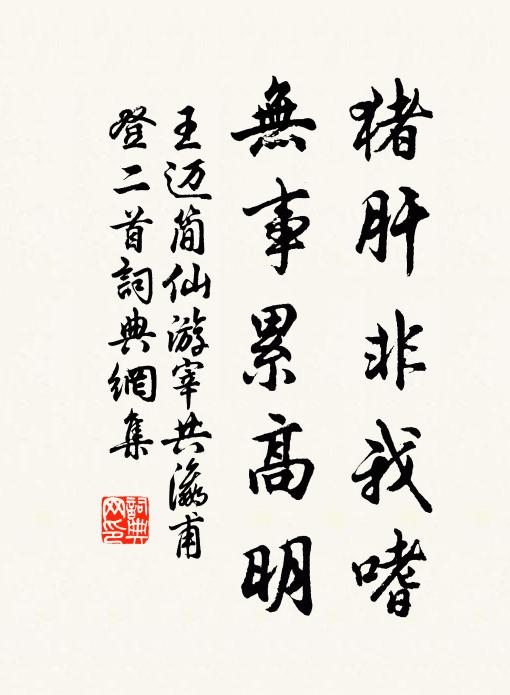 猪肝非我嗜
無事累高明
王迈简仙游宰共瀛甫
登二首詞典網集
詞典
网印